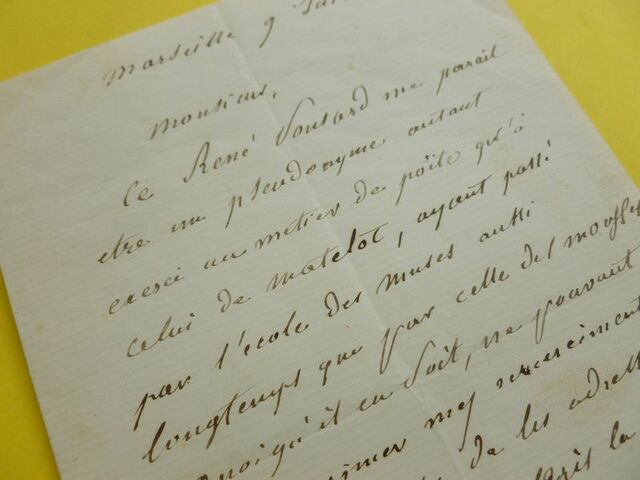 Marseille 9
Monsieur,
Ce René Ponsard me parrait
etre un pseudonyme autant
exercé au métier de poëte qu'à
celui de matelot, ayant passé
par l'école des muses aussi
longtemps que par celle des mousses
quoiqu'il en soit, ne pouvant
mes remerciment
de les
la